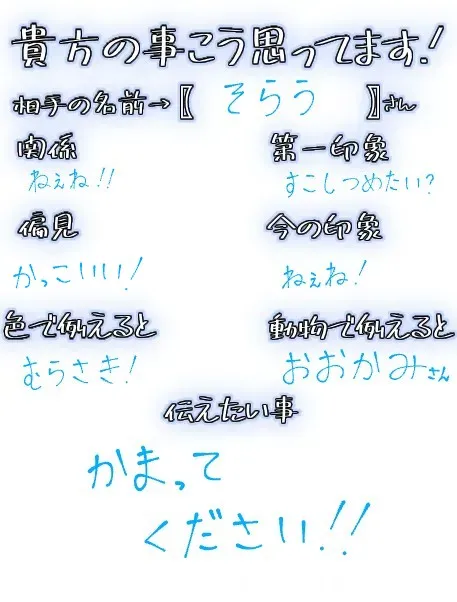 貴方の事こう思ってます!
相手の名前→〖そらう〗さん
関係
ねぇね!!
第一印象
すこしつめたい?
偏見
かっこいい!
今の印象
ねぇね!
色で例えると
むらさき!
動物で例えると
おおかみさん
伝えたい事
かまって
ください!!